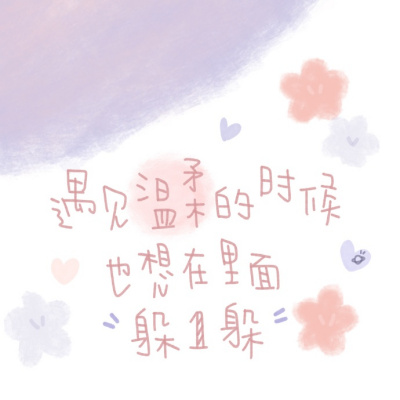 遇见温柔的时候
也想在里面
躲1躲